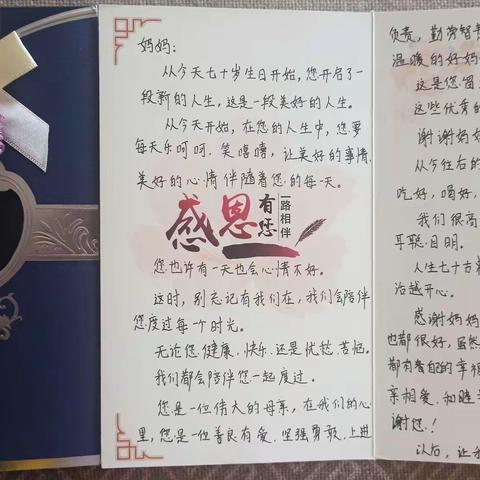 妈妈：
从今天七十岁生日开始，您开启了
一段新的人生，这是一段美好的人生。
从今天开始，在您的人生中，您要
每天乐呵呵，笑嘻嘻，让美好的事情，
美好的心情伴随着您的每一天。
感恩有您
一路相伴
您也许有一天也会心情不好。
这时，别忘记有我们在，我们会陪伴
您度过每一个时光。
无论您健康、快乐、还是忧愁、苦恼。
我们都会陪伴您一起度过。
您是一位伟大的母亲，在我们的心
里，您是一位善良有爱、坚强勇敢、上进
负责，勤劳智
温暖的好妈
这是您留
这些优秀的
谢谢妈妈
从今往后的
吃好，喝好，
我们很高
耳聪目明。
人生七十古
活越开心。
感谢妈妈
也都很好，虽然
都有着自己的幸福
亲相爱、和睦
谢您！
以后，让我